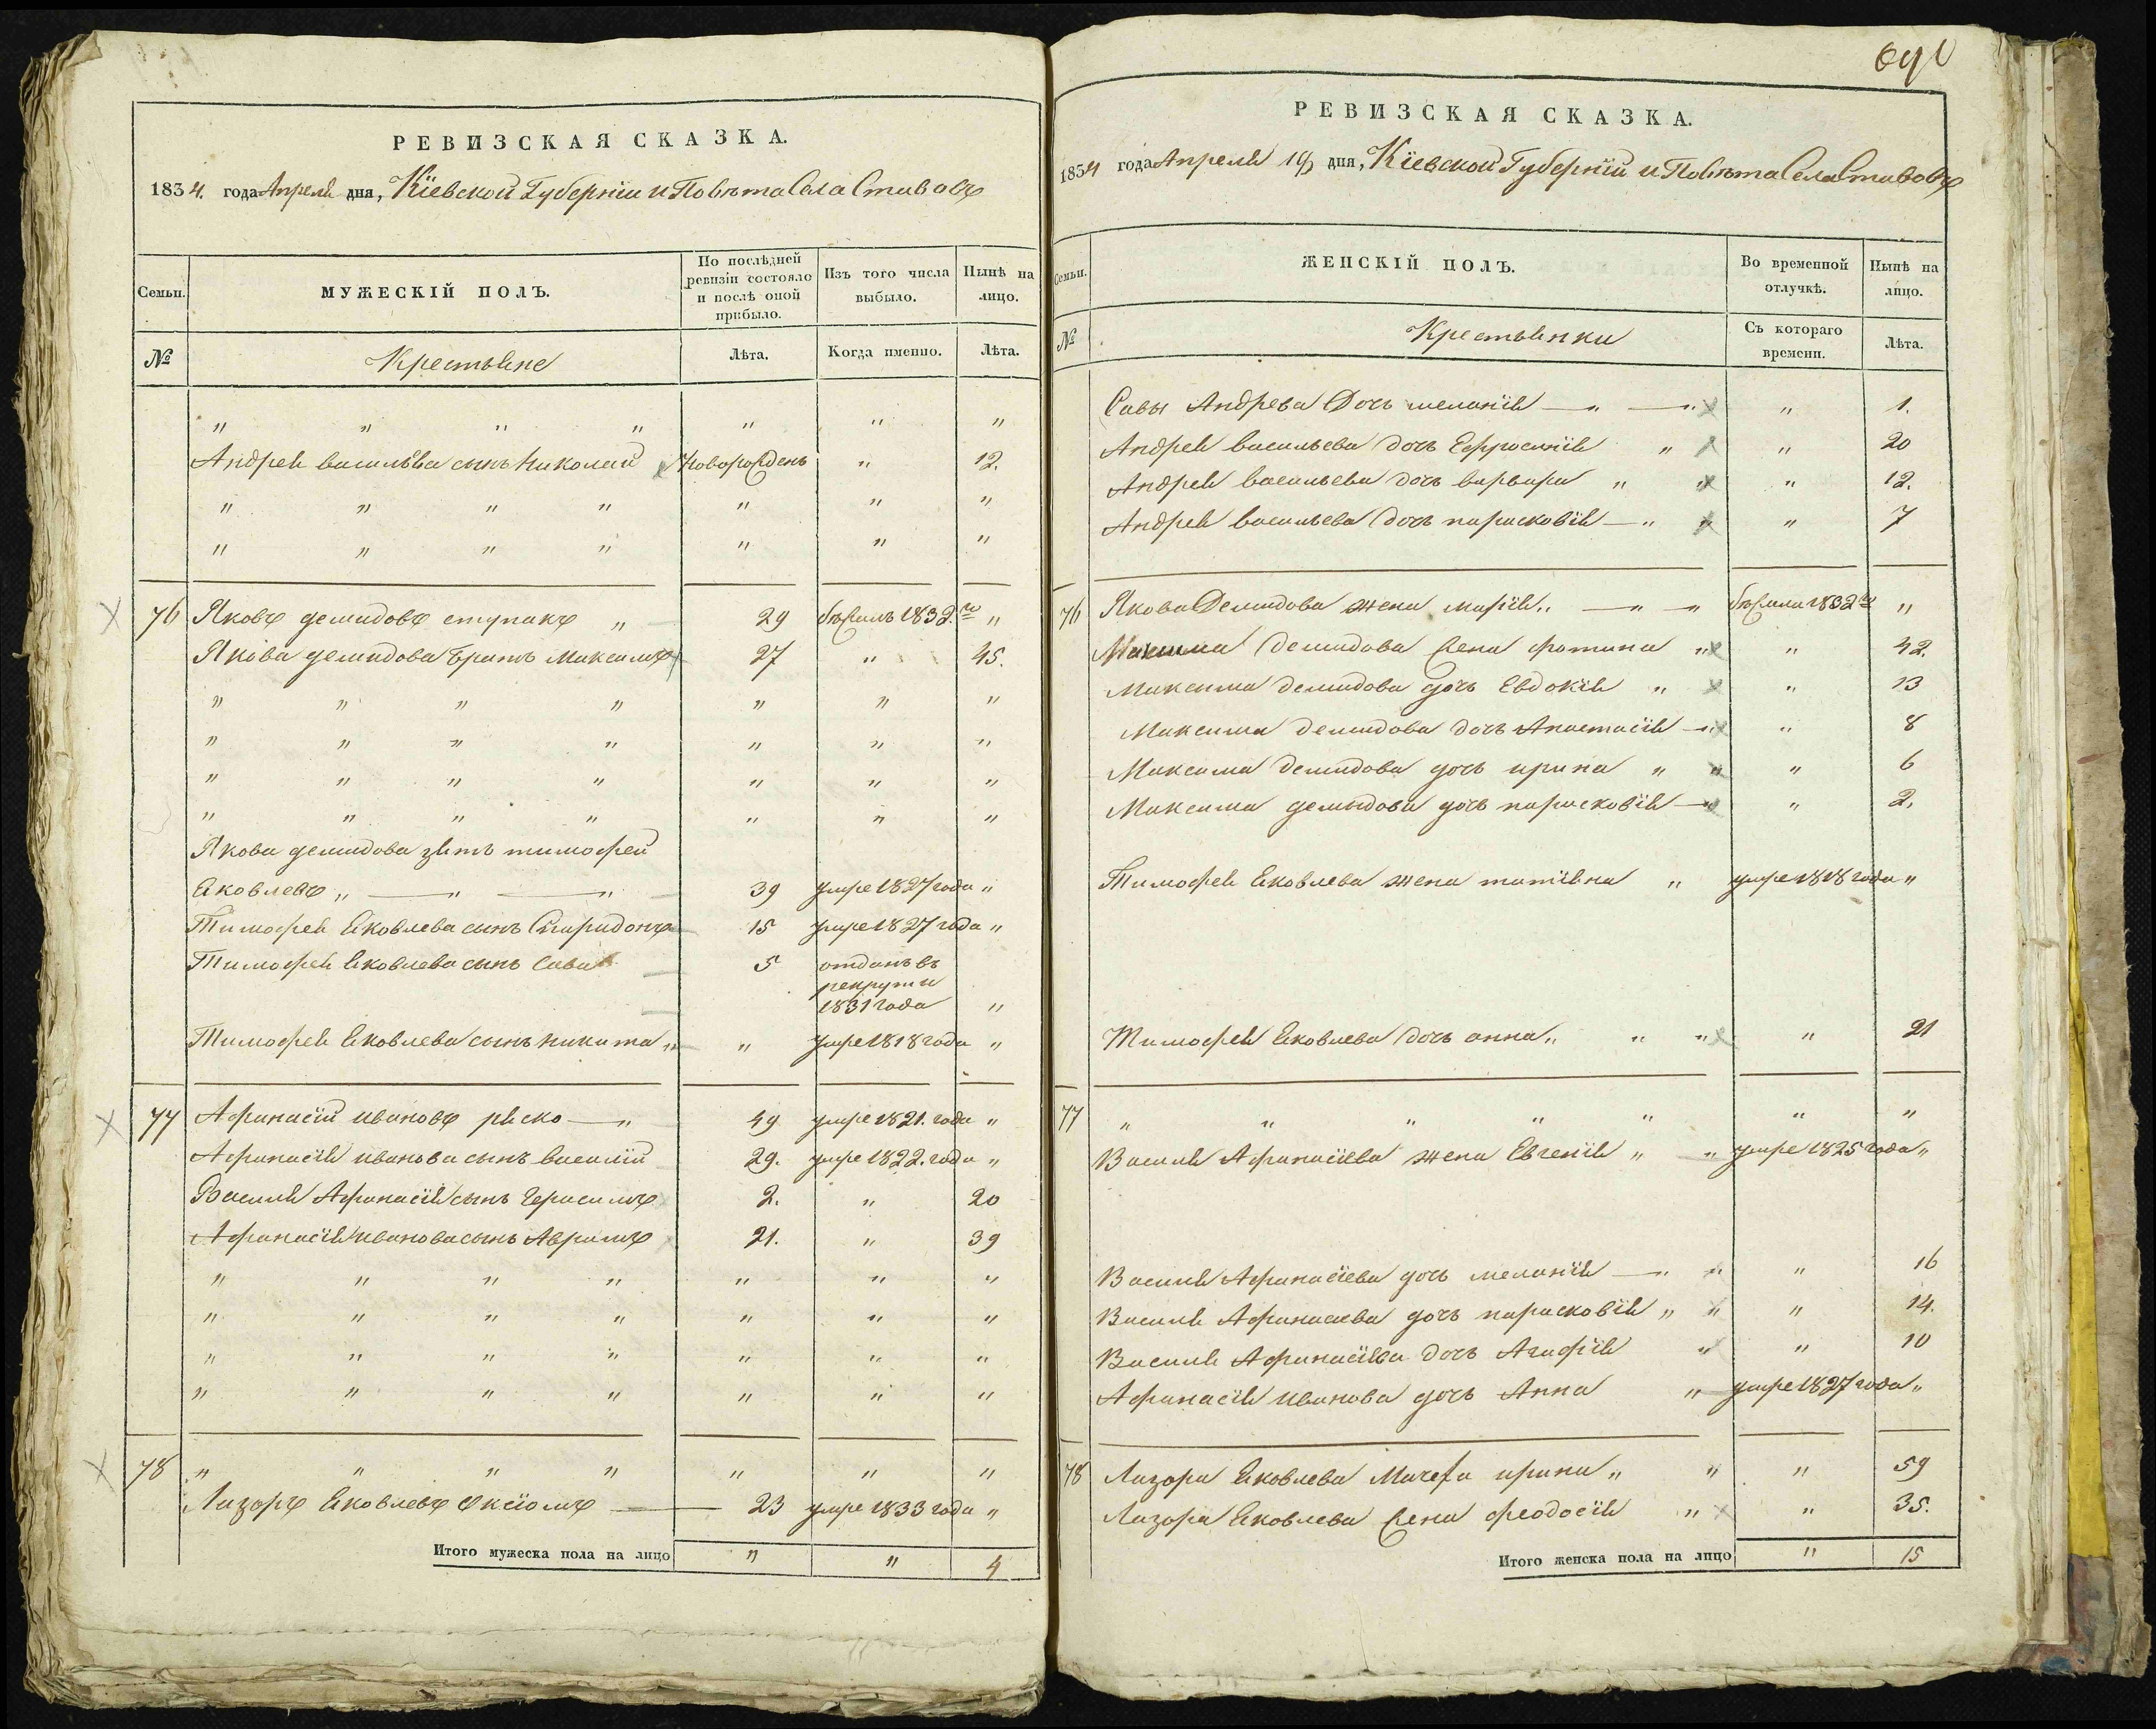 РЕВИЗСКАЯ СКАЗКА.
1834. года Апреля дня, Кіевской Губерніи и Повѣта Села Ставовъ
Семьи.
МУЖЕСКІЙ ПОЛЪ.
По послѣдней ревизіи состояло и послѣ оной прибыло.
Изъ того числа выбыло.
Нынѣ на лицо.
№
Крестьяне
Лѣта.
Когда именно.
Лѣта.
" " " " " " "
Андрея васильева сынъ Николай новорожденъ " 12.
" " " " " " "
" " " " " " "
76 Яковъ демидовъ ступакъ " 29 бѣжалъ 1832. го "
Якова демидова братъ Максимъ 27 " 45.
" " " " " " "
" " " " " " "
" " " " " " "
" " " " " " "
Якова демидова зять тимофей
Яковлевъ " — " — " 39 умре 1827 года "
Тимофея Яковлева сынъ Спиридонъ 15 умре 1827 года "
Тимофея Яковлева сынъ Сава 5 отданъ въ
рекруты
1831 года "
Тимофея Яковлева сынъ никита " " умре 1818 года "
77 Афанасій ивановъ ряско — " 49 умре 1821. года "
Афанасія иванова сынъ василій 29. умре 1822. года "
Василя Афанасія сынъ Герасимъ 2. " 20
Афанасія иванова сынъ Аврамъ 21. " 39
" " " " " " "
" " " " " " "
" " " " " " "
" " " " " " "
78 " " " " " " "
Лазоръ Яковлевъ — 23 умре 1833 года "
Итого мужеска пола на лицо " " 4
691
РЕВИЗСКАЯ СКАЗКА.
1834 года Апреля 19 дня, Кіевской Губерніи и Повѣта Села Ставовъ
Семьи.
ЖЕНСКІЙ ПОЛЪ.
Во временной отлучкѣ.
Нынѣ на лицо.
№
Крестьянки
Съ котораго времени.
Лѣта.
Савы Андрева Дочь меланія — " — " " 1.
Андрея васильева дочь Ефросинія " " 20
Андрея васильева дочь варвара " " " 12.
Андрея васильева дочь парасковія — " " " 7
76 Якова Демидова жена марія " — " — " бѣжала 1832 го "
Максима Демидова жена фотина " " 42.
Максима демидова дочь Евдокія " " 13
Максима демидова дочь Анастасія — " " 8
Максима демидова дочь ирина " " " 6
Максима демидова дочь парасковія — " " 2.
Тимофея Яковлева жена татіяна " умре 1818 года "
Тимофея Яковлева дочь анна " " " " 21
77 " " " " " " "
Василя Афанасіева жена Евгенія " " умре 1825 года "
Василя Афанасіева дочь меланія — " " " 16
Василя Афанасиева дочь парасковія " " " 14.
Василя Афанасіева дочь Агафія " " 10
Афанасія иванова дочь Анна " умре 1827 года "
78 Лазора Яковлева Мачеха ирина " " " 59
Лазора Яковлева жена феодосія " " 35.
Итого женска пола на лицо " 15